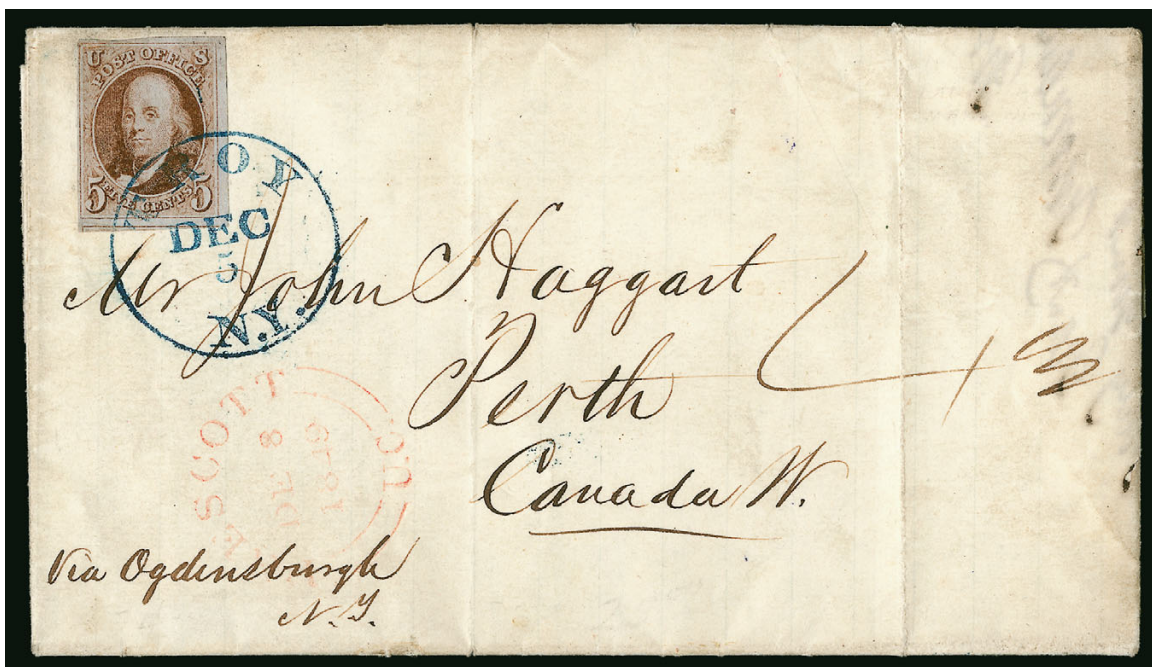 U S
POST OFFICE
5 FIVE CENTS 5
TROY
DEC
5
N.Y.
Mr John Haggart
Perth
Canada W.
Via Ogdensburgh
N.Y.